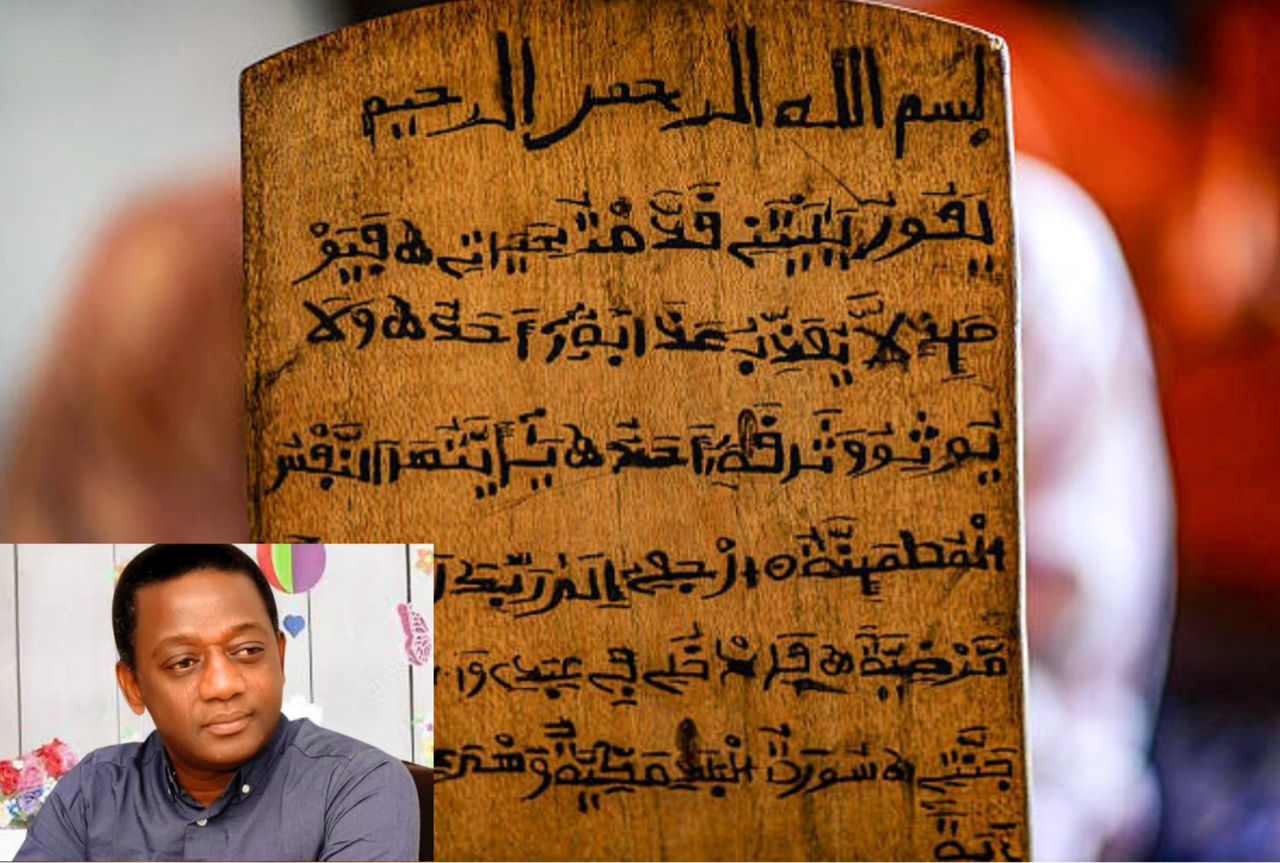 بسم الله الرحمن الرحيم
يَقُولُ يَٰلَيْتَنِے قَدَّمْتُ لِحَيَاتِے ه فَيَوْ
مَئِذٍ لَّا يُعَذِّبُ عَذَابَهُ أَحَدٌ ه وَلَا
يُوثِقُ وَثَاقَهُ أَحَدٌ ه يَٰأَيَّتُهَا النَّفْسُ
الْمُطْمَئِنَّةُ ه ارْجِعِے إِلَىٰ رَبِّكِ
مَّرْضِيَّةً ه فَادْخُلِے فِے عِبَٰدِے وَا
جَنَّتِے ه سُورَةُ الْبَلَدِ مَكِّيَّةٌ وَهْىَ